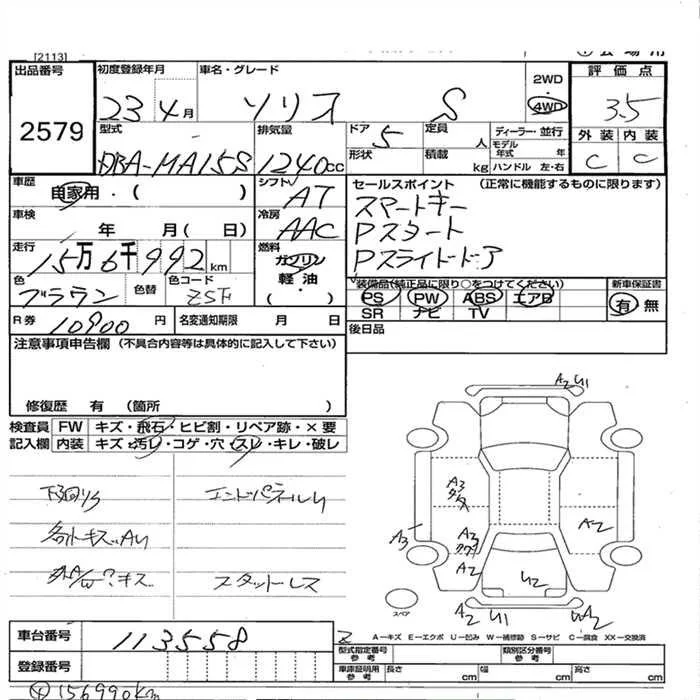 [2113]
出品番号
2579
初度登録年月
23年4月
車名・グレード
ソリオ S
2WD
4WD
評価点
3.5
外装 内装
C C
型式
DBA-MA15S
排気量
1240cc
ドア 5
形状
定員 人
積載 kg
ディーラー・並行
モデル年式 年
ハンドル 左・右
車歴
自家用・( )
シフト
AT
セールスポイント (正常に機能するものに限ります)
スマートキー
Pスタート
Pスライドドア
車検
年 月( 日)
冷房
AAC
走行
15万6千992km
燃料
ガソリン
軽油
・( )
色
ブラウン
色替
色コード
ZSF
装備品(純正品に限り○をつけてください)
PS PW ABS エアB
SR ナビ TV
新車保証書
有 無
R券 10900円
名変通知期限 月 日
後日品
注意事項申告欄 (不具合内容等は具体的に記入して下さい)
修復歴 有 (箇所 )
検査員 FW キズ・飛石・ヒビ割・リペア跡・×要
記入欄 内装 キズ・汚レ・コゲ・穴・スレ・キレ・破レ
下回りS
エンドパネルU
各所キズ、AU
スタットレス
A2 U1
A3
A3
A2
A3
A2
U2
A2 U1
UA2
スペア
A-キズ E-エクボ U-凹み W-補修跡 S-サビ C-腐食 XX-交換済
車台番号
113558
登録番号
型式指定番号 参考
類別区分番号 参考
車庫証明用 参考 長さ cm 幅 cm 高さ cm
156990km